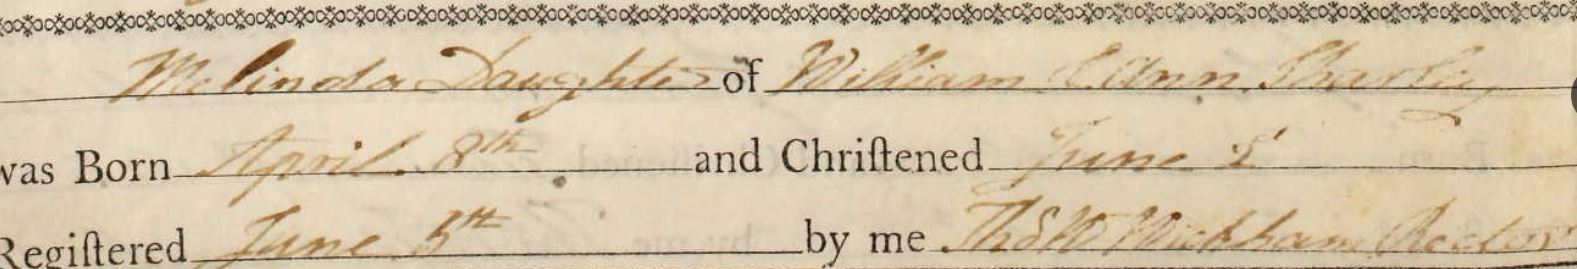 Melinda Daughter of William & Ann Sharley
was Born April 8th and Chriſtened June 5
Regiſtered June 5th by me Wickham Rector